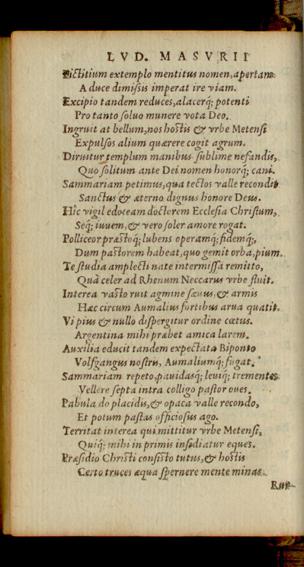 LVD. MASVRII
Dictitium extemplo mentitus nomen, apertam
A duce dimissis imperat ire viam.
Excipio tandem reduces, alacerq; potenti
Pro tanto soluo munere vota Deo.
Ingruit at bellum, nos hostis & vrbe Metensi
Expulsos alium quærere cogit agrum.
Diruitur templum manibus sublime nefandis,
Quo solitum ante Dei nomen honorq; cani.
Sammariam petimus, qua tectos valle recondit
Sanctus & æterno dignus honore Deus.
Hic vigil edoceam doctorem Ecclesia Christum,
Seq; iuuem, & vero soler amore rogat.
Polliceor præstoq; lubens operamq; fidemq;,
Dum pastorem habeat, quo gemit orba, pium.
Te studia amplecti nate intermissa remitto,
Quà celer ad Rhenum Neccarus vrbe fluit.
Interea vasto ruit agmine sæuus, & armis
Hæc circum Aumalius fortibus arua quatit.
Vi pius & nullo dispergitur ordine cœtus.
Argentina mihi præbet amica larem.
Auxilia educit tandem expectata Biponto
Volfgangus nostris, Aumaliumq; fugat.
Sammariam repeto, pauidasq; leuiq; trementes
Vellere septa intra colligo pastor oues.
Pabula do placidis, & opaca valle recondo,
Et potum pastas officiosus ago.
Territat interea qui mittitur vrbe Metensi,
Quiq; mihi in primis insidiatur eques.
Præsidio Christi consisto tutus, & hostis
Certo truces æqua spernere mente minas.